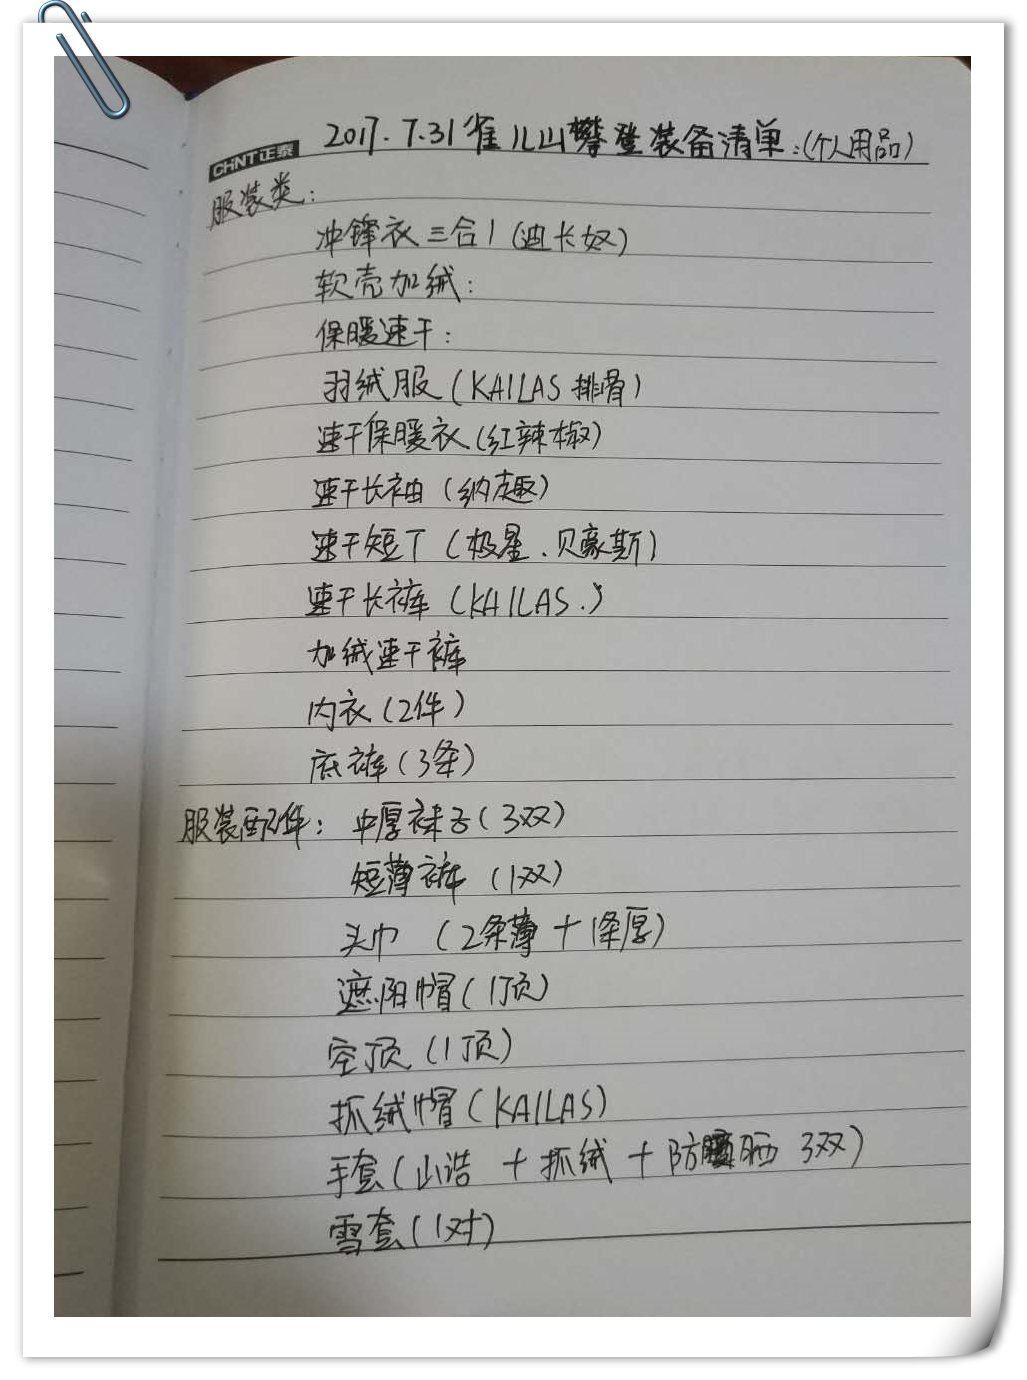 2017.7.31雀儿山攀登装备清单:(个人用品)
CHNT正泰
服装类:
冲锋衣三合1(迪卡奴)
软壳加绒:
保暖速干:
羽绒服(KAILAS 排骨)
速干保暖衣(红辣椒)
速干长袖(纳趣)
速干短T(极星、贝豪斯)
速干长裤(KAILAS.)
加绒速干裤
内衣(2件)
底裤(3条)
服装配件: 中厚袜子(3双)
短薄裤(1双)
头巾(2条薄+1条厚)
遮阳帽(1顶)
空顶(1顶)
抓绒帽(KAILAS)
手套(山浩+抓绒+防晒 3双)
雪套(1对)